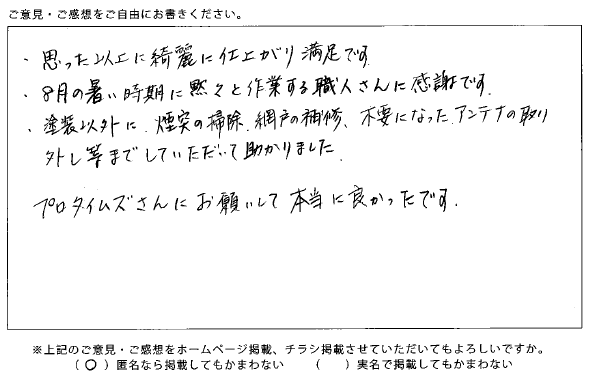 ご意見・ご感想をご自由にお書きください。
・思った以上に綺麗に仕上がり満足です
・8月の暑い時期に黙々と作業する職人さんに感謝です.
・塗装以外に、煙突の掃除、網戸の補修、不要になったアンテナの取り
外し等までしていただいて助かりました
プロタイムズさんにお願いして本当に良かったです.
※上記のご意見・ご感想をホームページ掲載、チラシ掲載させていただいてもよろしいですか。
(○)匿名なら掲載してもかまわない ( )実名で掲載してもかまわない